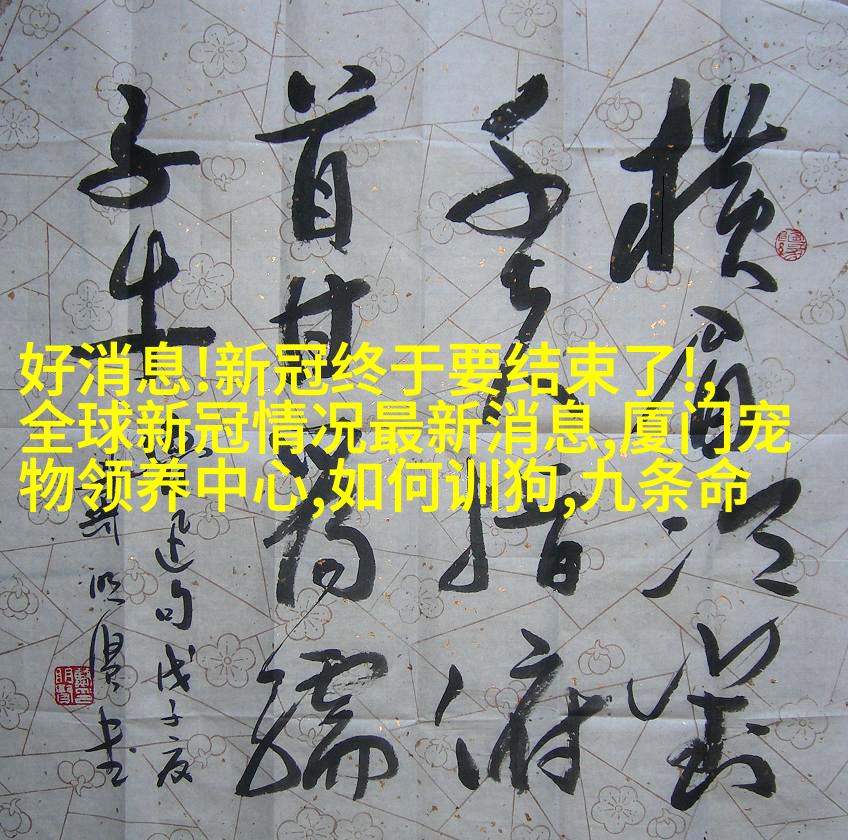 好消息!新冠终于要结束了!,
全球新冠情况最新消息,厦门宠
物领养中心,如何训狗,九条命
横眉冷對
千夫指俯
首甘為孺
子牛
迅句戊子夏
明
書